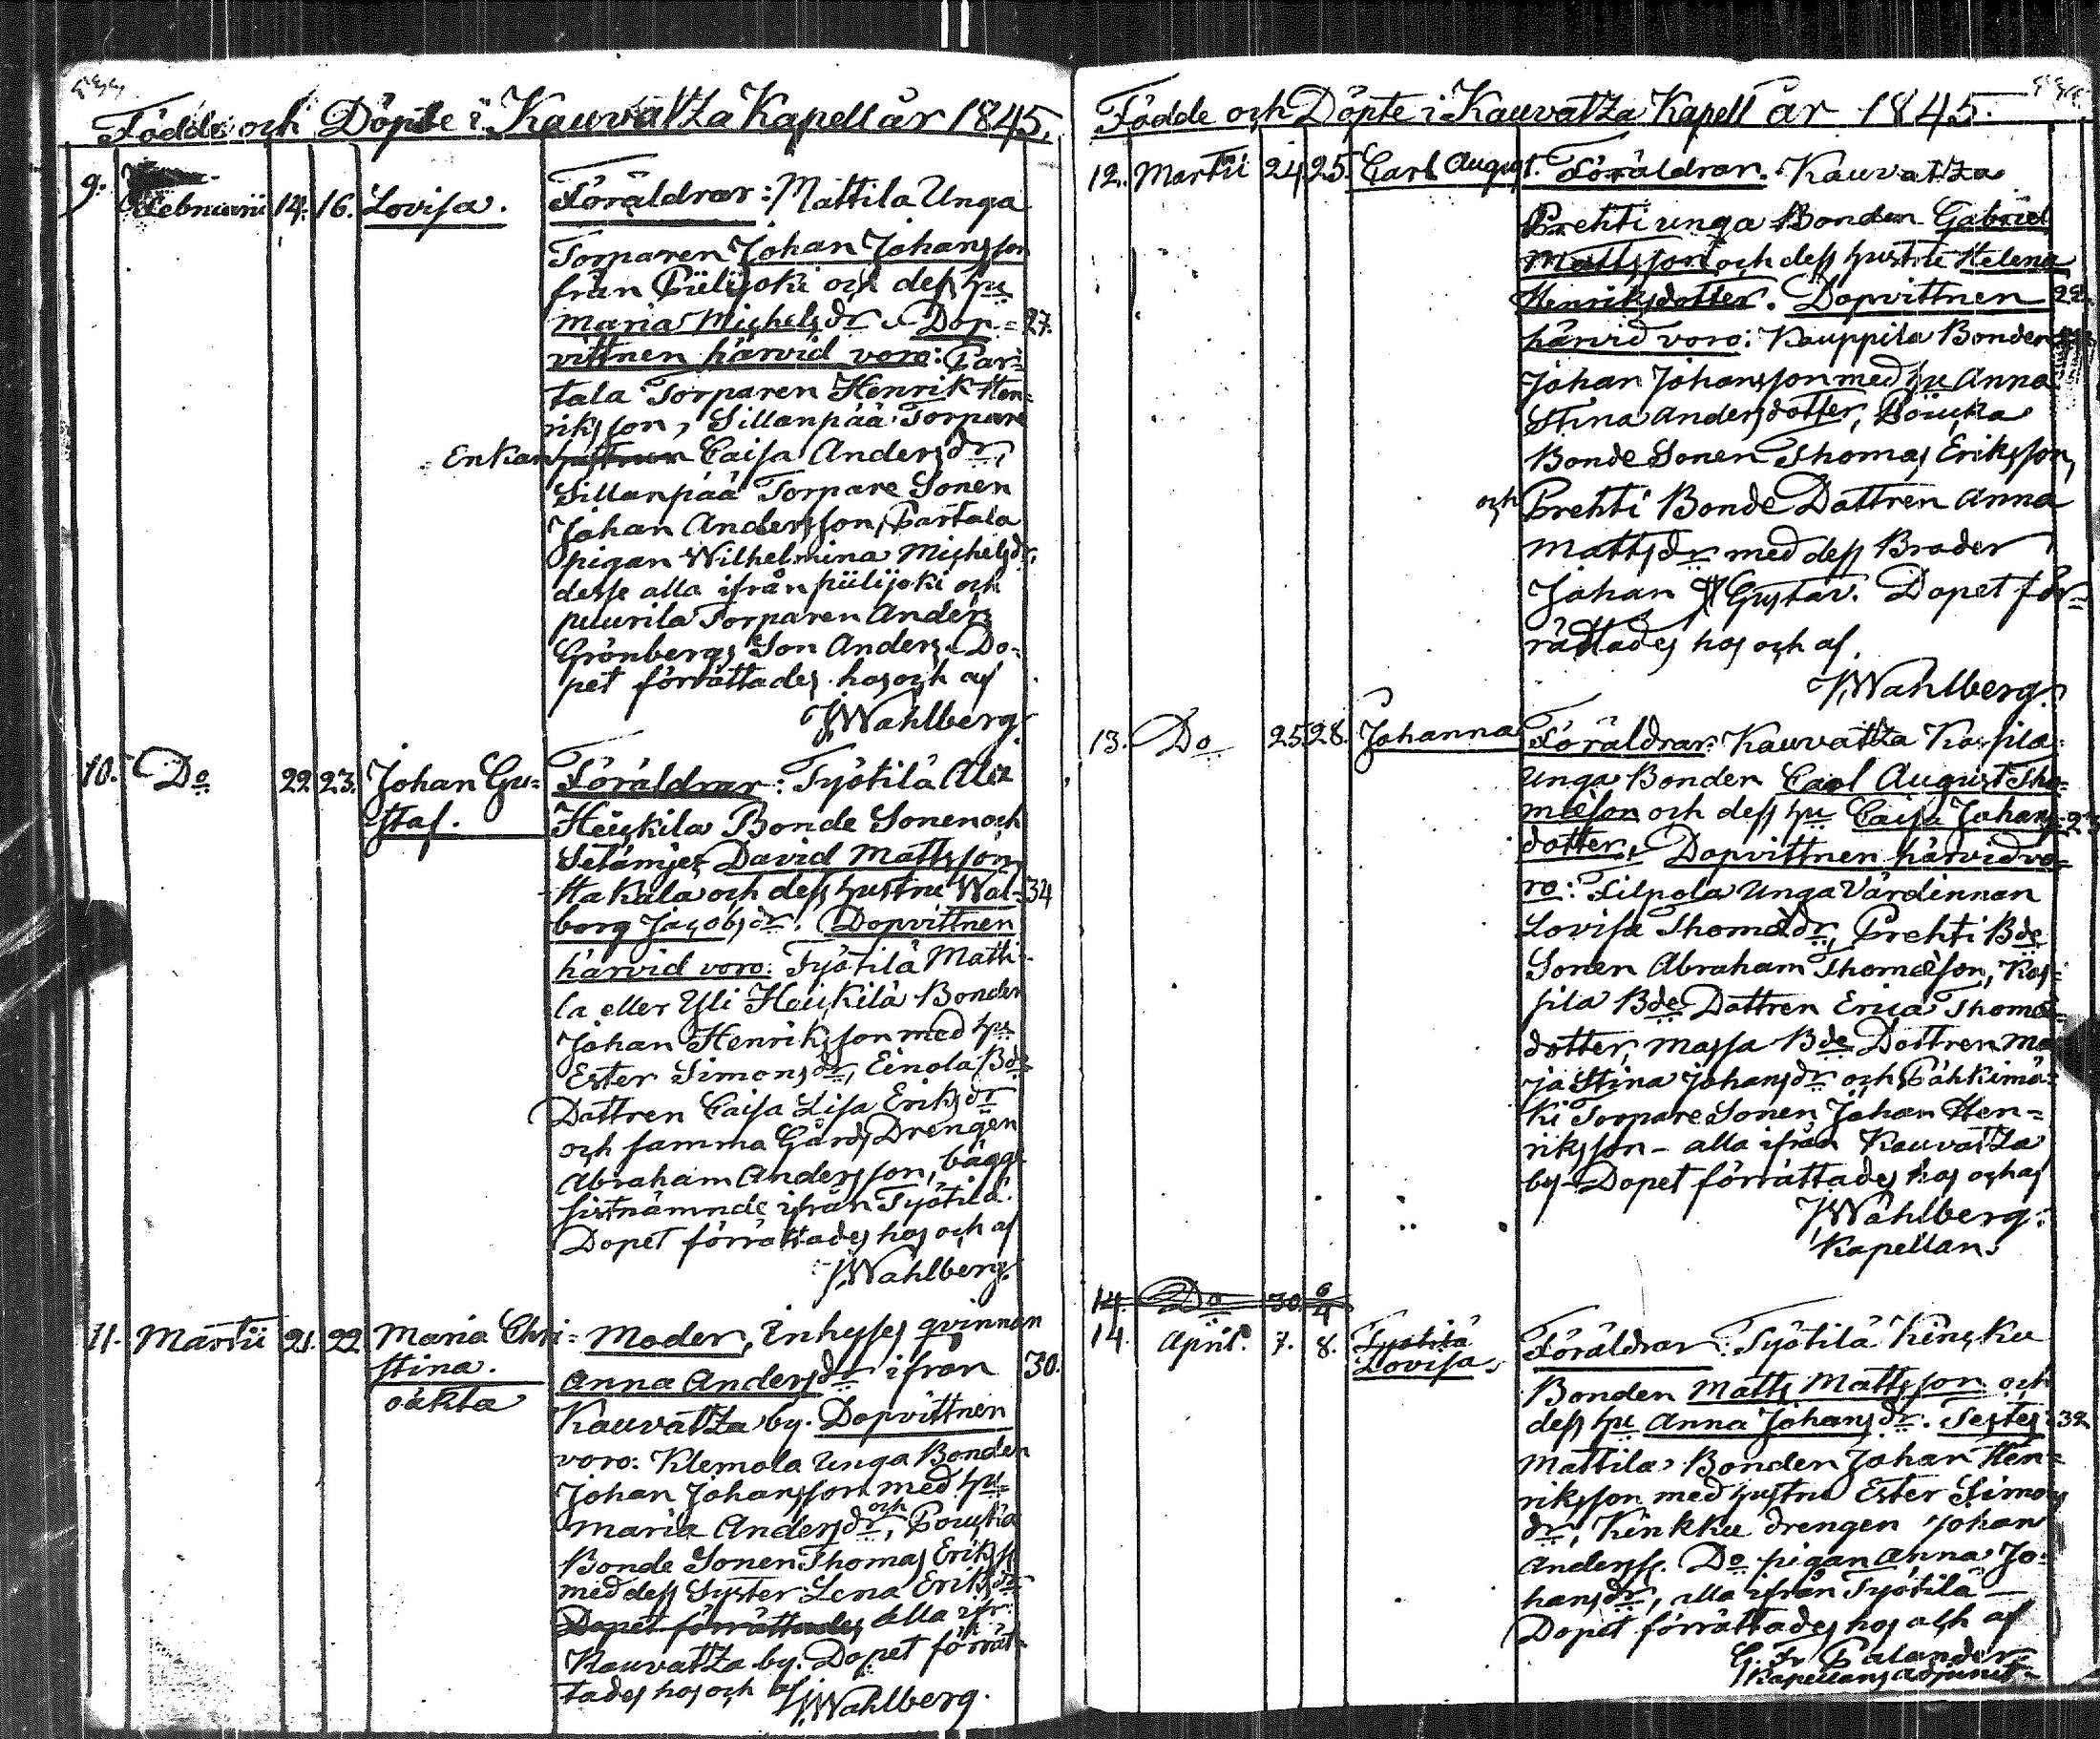 Födde och Döpte i Kauvatza Kapell år 1845.
9. Februarii 14. 16. Lovisa. Föräldrar: Mattila Unga
Torparen Johan Johansson
från Piilijoki och dess hu
Maria Michelsdr. Dop= 27.
vittnen härvid voro: Par=
tala Torparen Henrik Hen=
riksson, Sillanpää Torpare
Enkan hustrun Caisa Andersdr,
Sillanpää Torpare Sonen
Johan Andersson, Partala
pigan Wilhelmina Michelsdr,
desse alla ifrån piilijoki och
puurila Torparen Anders
Grönbergs Son Anders. Do=
pet förrättades hos och af
J Wahlberg.
10. Do 22 23. Johan Gu= Föräldrar: Työtilä Ala
staf. Heiskila Bonde Sonen och
David Mattsson
Hakala och dess hustru Wal= 34
borg Jacobsdr. Dopvittnen
härvid voro: Työtilä Matti=
la eller Yli Heikilä Bonden
Johan Henriksson med hu
Ester Simonsdr, Einola Bde
Dottren Caisa Lisa Eriksdr
och samma Gårds Drengen
Abraham Andersson, bägge
sistnämnde ifrån Työtilä.
Dopet förrättades hos och af
J Wahlberg.
11. Martii 21. 22 Maria Chri= Moder, Inhyses qvinnan
stina. Anna Andersdr ifrån 30.
oäkta Kauvatza by. Dopvittnen
voro: Klemola Unga Bonden
Johan Johansson med hu
Maria Andersdr, och
Bonde Sonen Thomas Erikss.
med dess Syster Lena Eriksdr
Dopet förrättades alla ifr:
Kauvatza by. Dopet förrät=
tades hos och af J Wahlberg.
Födde och Döpte i Kauvatza Kapell år 1845.
12. Martii 24 25. Carl August. Föräldrar. Kauvatza
Prehti unga Bonden Gabriel
Mattsson och dess hustru Helena
Henriksdotter. Dopvittnen
härvid voro: Kauppila Bonden
Johan Johansson med hu Anna
Stina Andersdotter,
Bonde Sonen Thomas Eriksson,
och Prehti Bonde Dottren Anna
Mattsdr med dess Broder
Johan Gustav. Dopet för=
rättades hos och af
J Wahlberg.
13. Do 25 28. Johanna Föräldrar: Kauvatza Kassila
Unga Bonden Carl August Tho=
masson och dess hu Caisa Johans=
dotter, Dopvittnen härvid vo=
ro: Filpola Unga Värdinnan
Lovisa Thomædr, Prehti Bde
Sonen Abraham Thomæson, Kas=
sila Bde Dottren Erica Thomæ=
dotter, Massa Bde Dottren Ma
ja Stina Johansdr och Pähkimä=
ki Torpare Sonen Johan Hen=
riksson - alla ifrån Kauvatza
by - Dopet förrättades hos och af
J Wahlberg.
Kapellan.
14. Do 30. 6/4
14. April. 7. 8. Työtilä Föräldrar: Työtilä Kinkku
Lovisa. Bonden Matts Mattsson och
dess hu Anna Johansdr. Testes: 32
Mattila Bonden Johan Hen=
riksson med hustru Ester Simons
dr, Kinkku drengen Johan
Anderss. Do pigan Anna Jo=
hansdr, alla ifrån Työtilä -
Dopet förrättades hos och af
G. Fr Palander
Kapellans adjunct